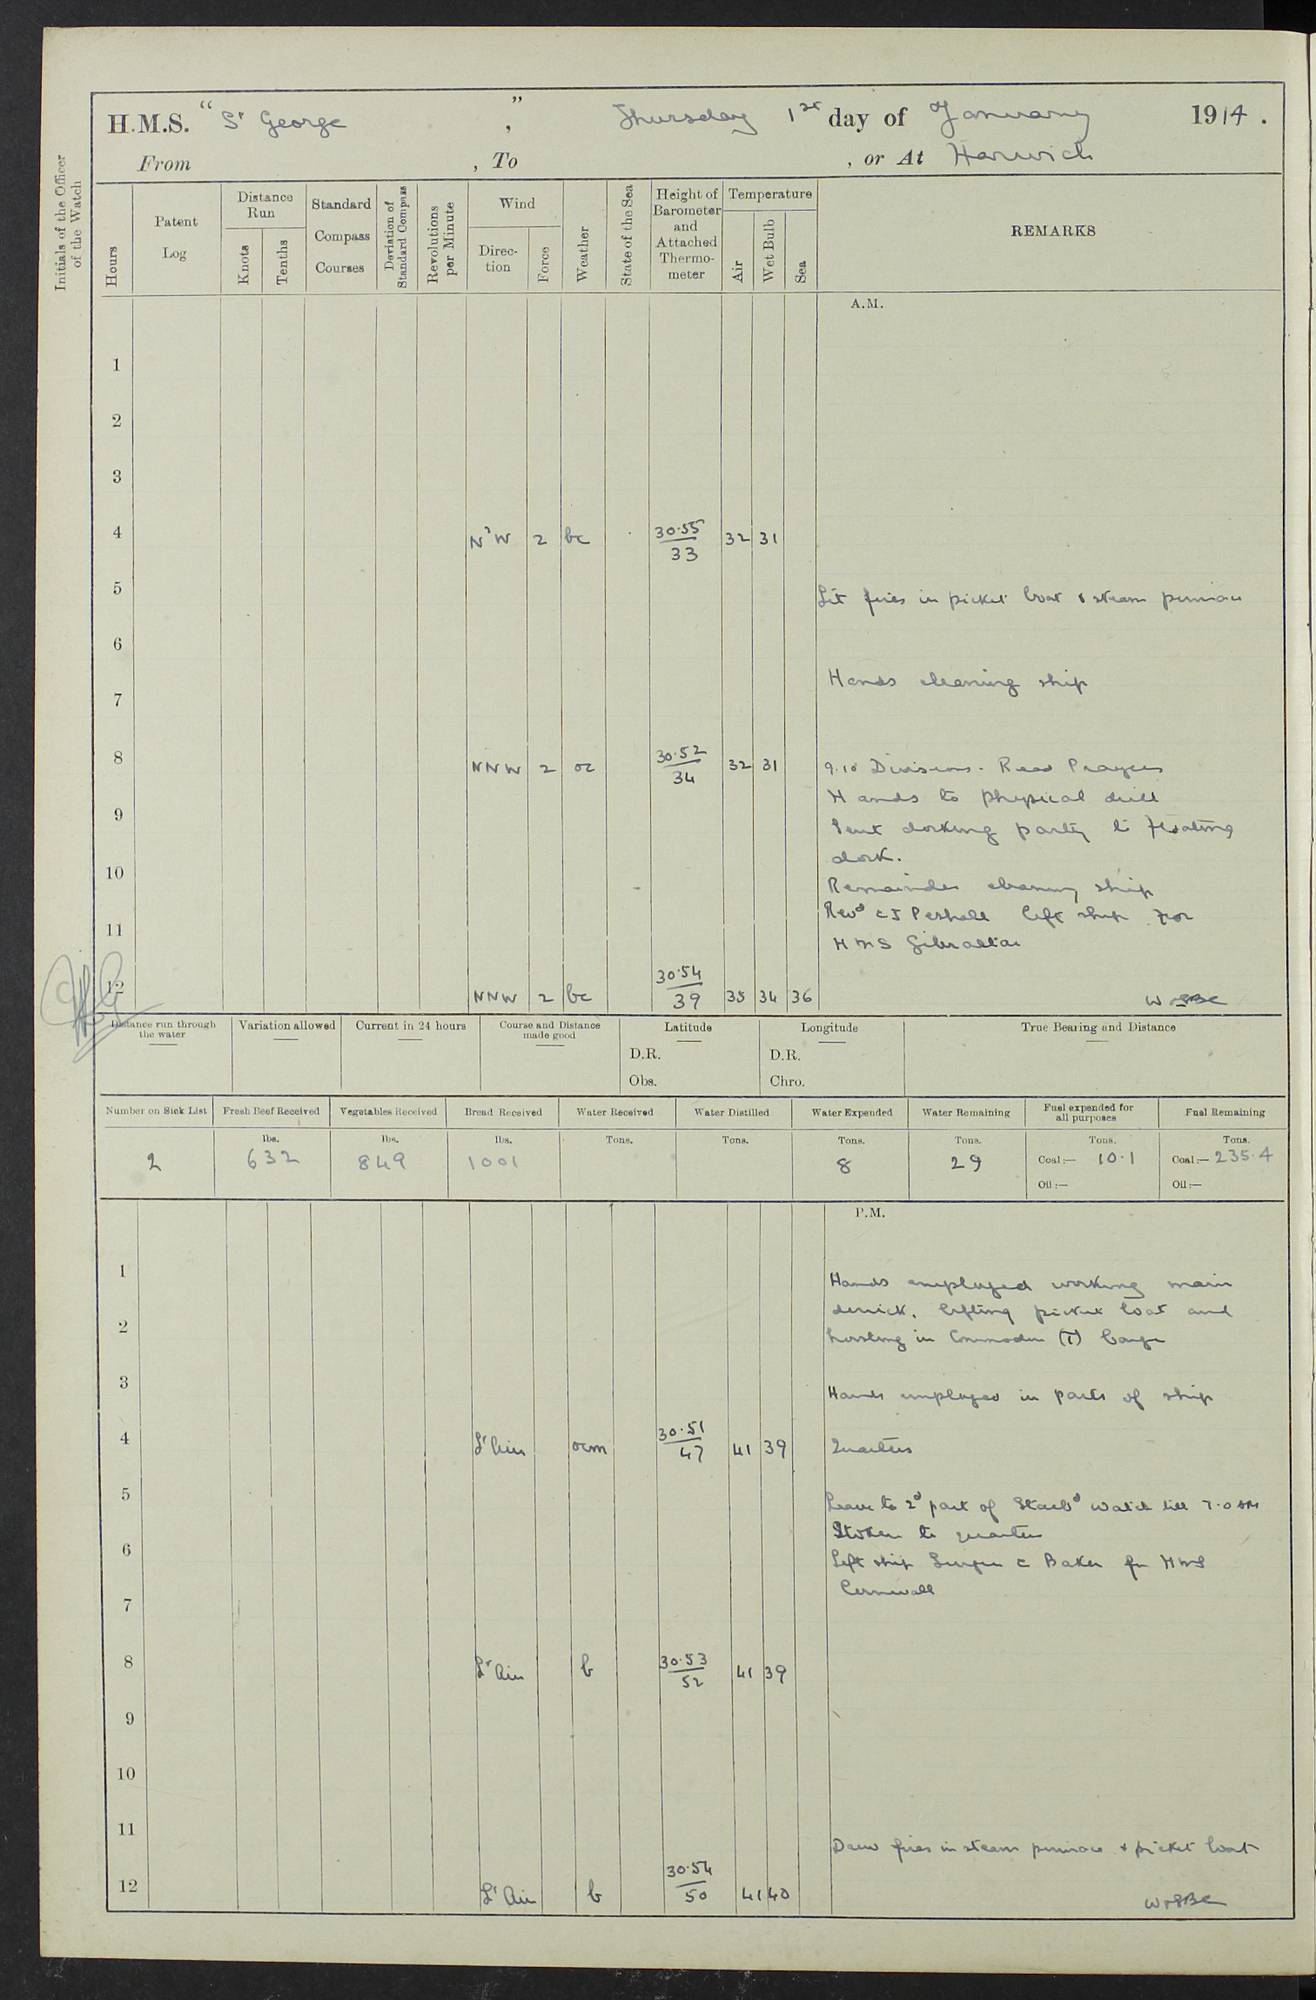 H.M.S. "St George", Thursday 1st day of January 1914.
From , To , or At Harwich
Initials of the Officer of the Watch
Hours
Patent Log
Distance Run
Knots
Tenths
Standard Compass Courses
Deviation of Standard Compass
Revolutions per Minute
Wind
Direction
Force
Weather
State of the Sea
Height of Barometer and Attached Thermometer
Temperature
Air
Wet Bulb
Sea
REMARKS
A.M.
1
2
3
4 N'W 2 bc 30.55/33 32 31
5 Lit fires in picket boat & steam pinnace
6
Hands cleaning ship
7
8 NNW 2 oc 30.52/34 32 31 9.10 Divisions. Read Prayers
Hands to physical drill
9 Sent docking party to Floating
dock.
10 Remainder cleaning ship
Revd CJ Peshall left ship for
11 HMS Gibraltar
12 NNW 2 bc 30.54/39 35 34 36
Distance run through the water
Variation allowed
Current in 24 hours
Course and Distance made good
Latitude
D.R.
Obs.
Longitude
D.R.
Chro.
True Bearing and Distance
Number on Sick List Fresh Beef Received Vegetables Received Bread Received Water Received Water Distilled Water Expended Water Remaining Fuel expended for all purposes Fuel Remaining
lbs. lbs. lbs. Tons. Tons. Tons. Tons. Tons. Tons.
2 632 849 1001 8 29 Coal:— 10.1 Coal:— 235.4
Oil:— Oil:—
P.M.
1 Hands employed working main
derrick. lifting picket boat and
2 hoisting in Commodore (T) barge
3 Hands employed in parts of ship
4 Lt Airs ocm 30.51/47 41 39 Quarters
5 Leave to 2d part of Starbd Watch till 7.0 AM
Stokers to quarters
6 Left ship Surgeon C Baker for HMS
Cornwall
7
8 Lt Airs b 30.53/52 41 39
9
10
11 Drew fires in steam pinnace & picket boat
12 Lt Airs b 30.54/50 41 40